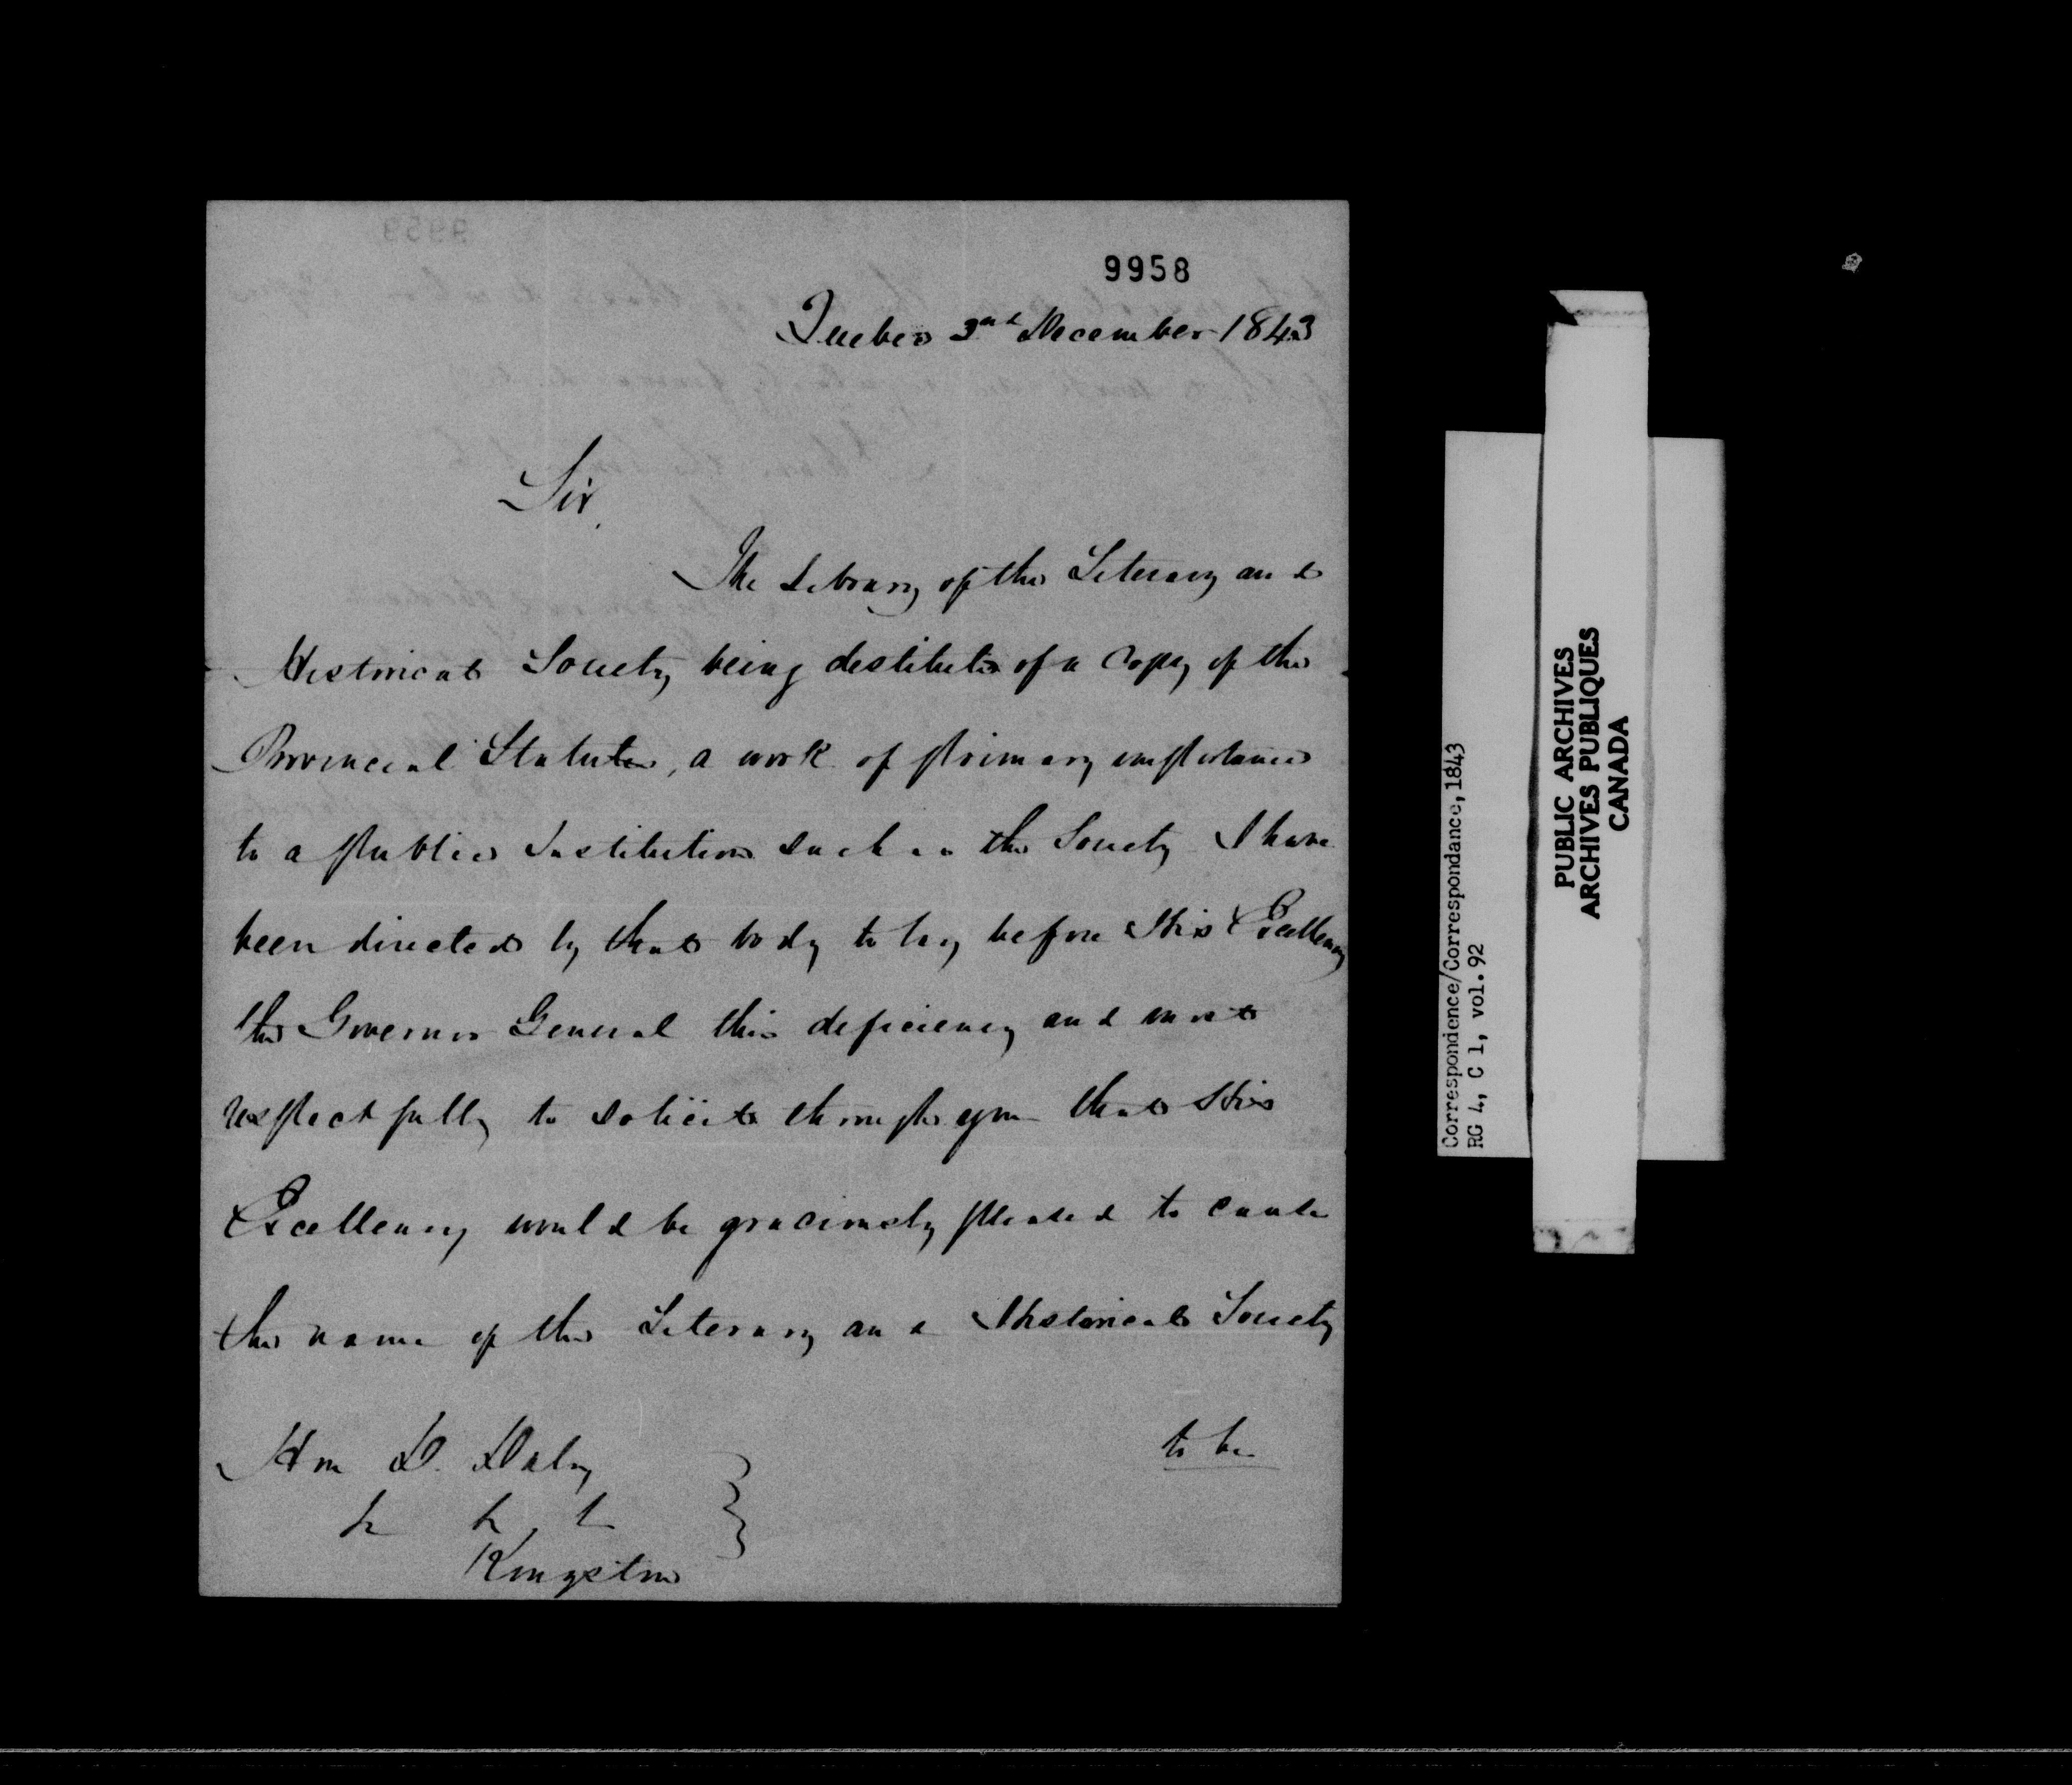 9958
Quebec 3rd December 1843
Sir,
The Library of the Literary and
Historical Society being destitute of a Copy of the
Provincial Statutes, a work of primary importance
to a public Institution such as the Society I have
been directed by that body to lay before His Excellency
the Governor General this deficiency and most
respectfully to solicit through you that His
Excellency would be graciously pleased to cause
the name of the Literary and Historical Society
to be
Hon D. Daly
&c &c &c
Kingston
Correspondence/Correspondance, 1843
RG 4, C 1, vol. 92
PUBLIC ARCHIVES
ARCHIVES PUBLIQUES
CANADA